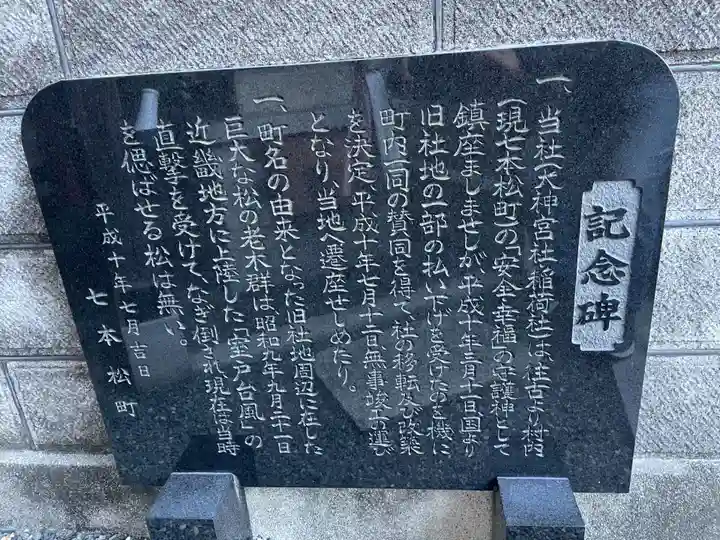 記念碑
一、当社(大神宮社稲荷社)は、往古より村内
(現七本松町)の「安全・幸福」の守護神として
鎮座ましませしが、平成十年三月十一日、国より
旧社地の一部の払い下げを受けたのを機に
町内一同の賛同を得て、社の移転及び改築
を決定、平成十年七月十二日、無事竣工の運び
となり、当地へ遷座せしめたり。
一、町名の由来となった旧社地周辺に在した
巨大な松の老木群は、昭和九年九月二十一日
近畿地方に上陸した「室戸台風」の
直撃を受けて、なぎ倒され現在は当時
を偲ばせる松は無い。
平成十年七月吉日
七本松町